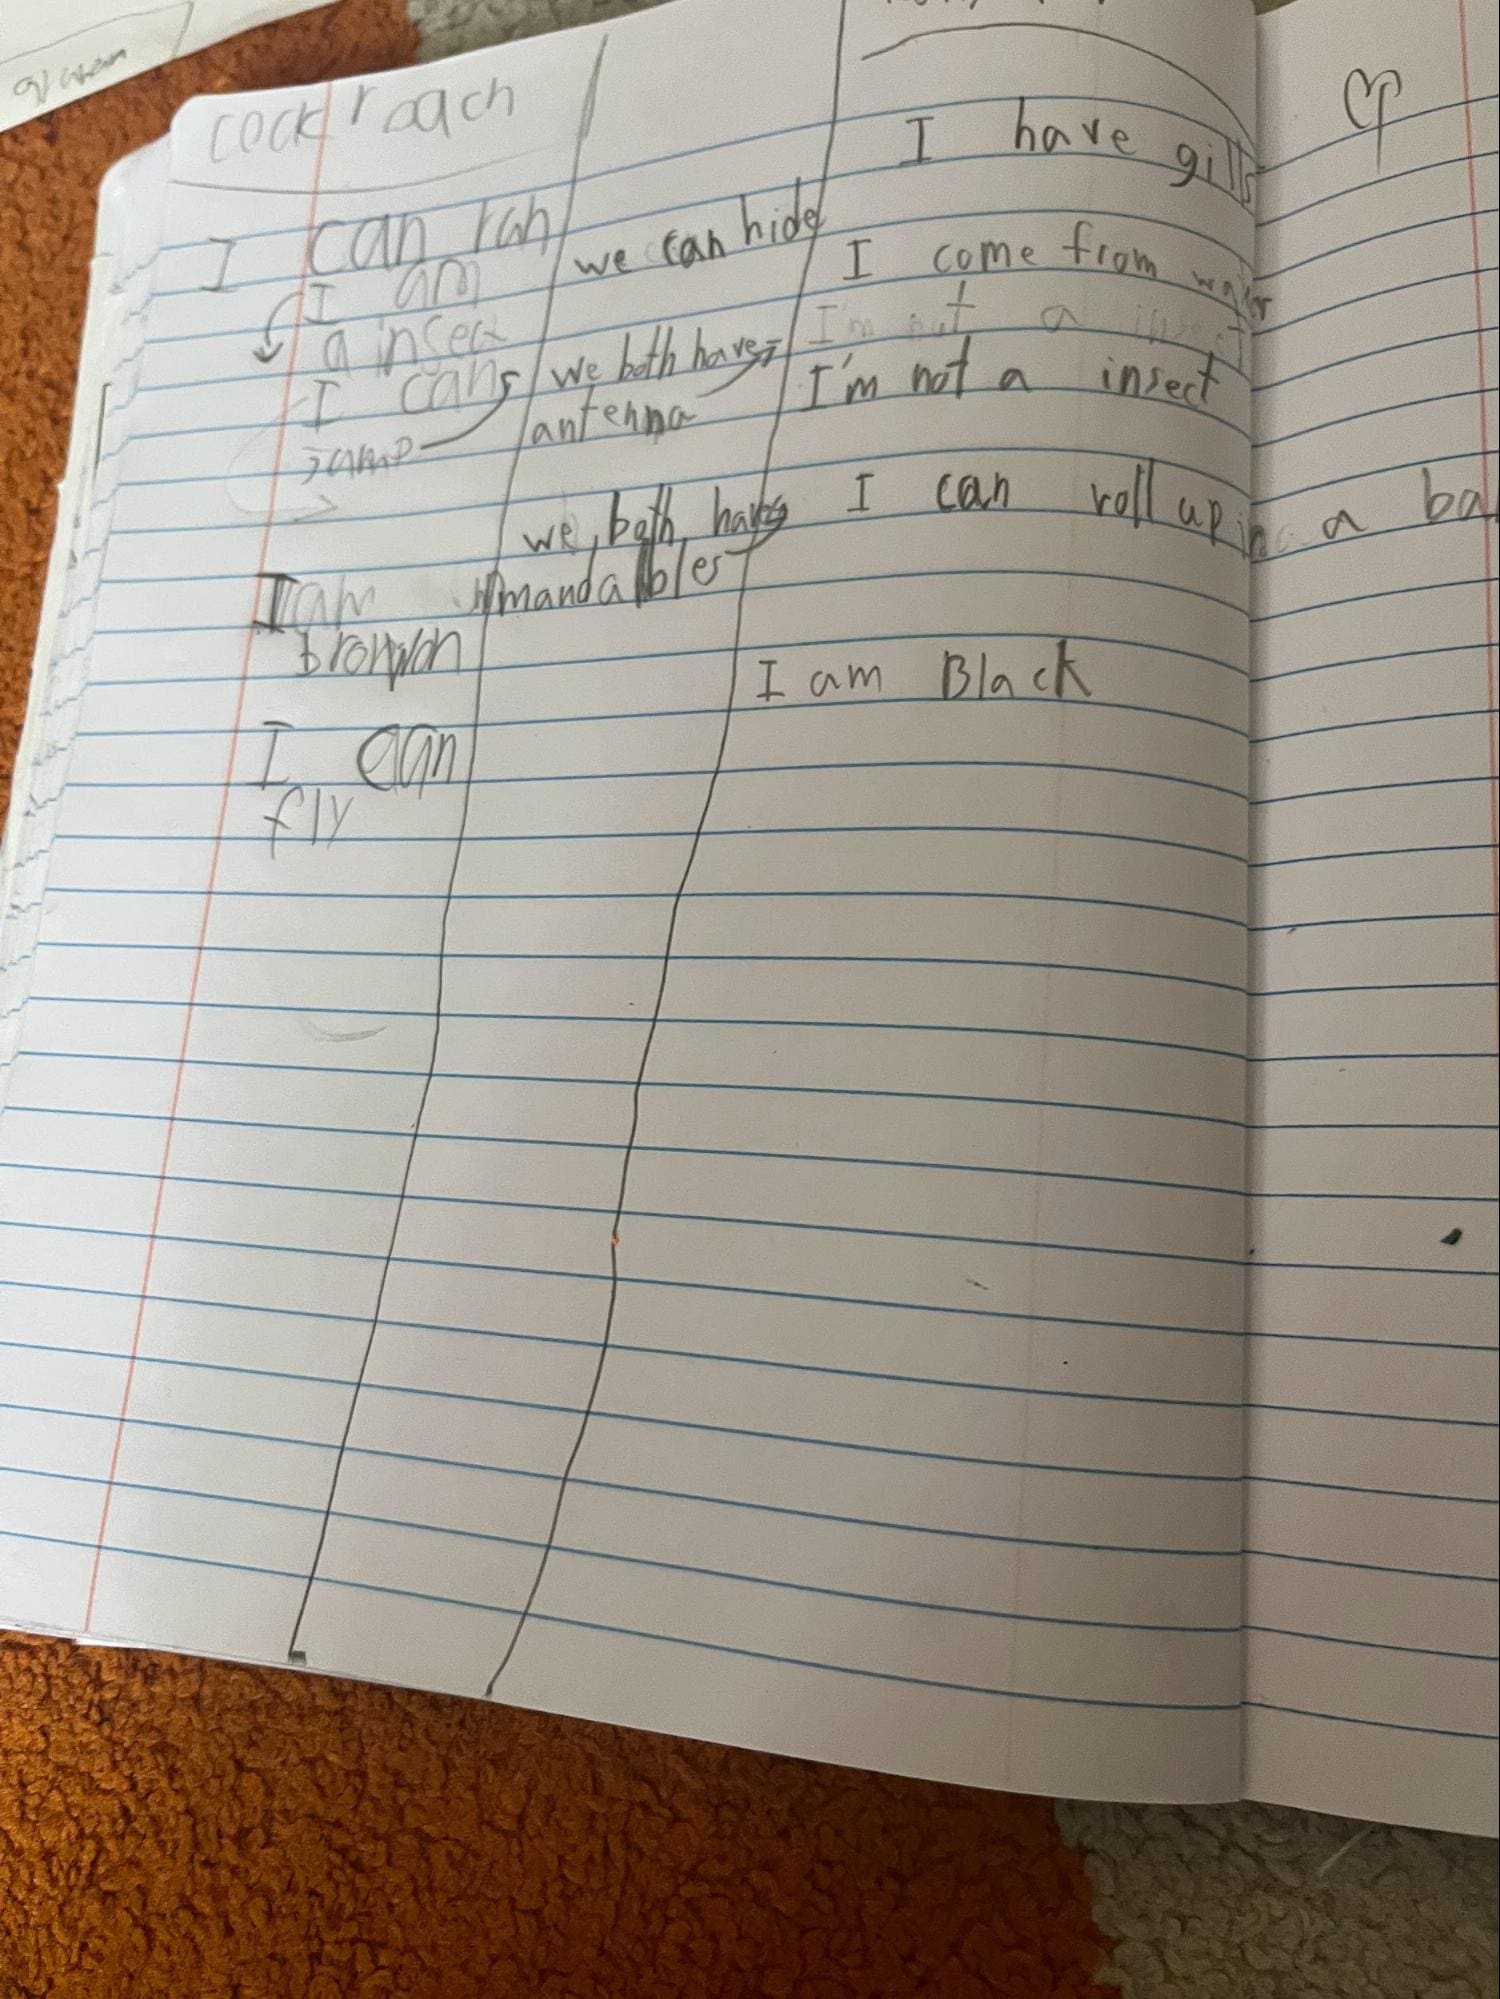 cockroach
I can run
I am
a insect
I can
jump
I am
browwn
I can
fly
we can hide
we both have
antenna
we both have
mandalbles
I have gills
I come from water
I'm not a insect
I'm not a insect
I can roll up in a ba
I am Black